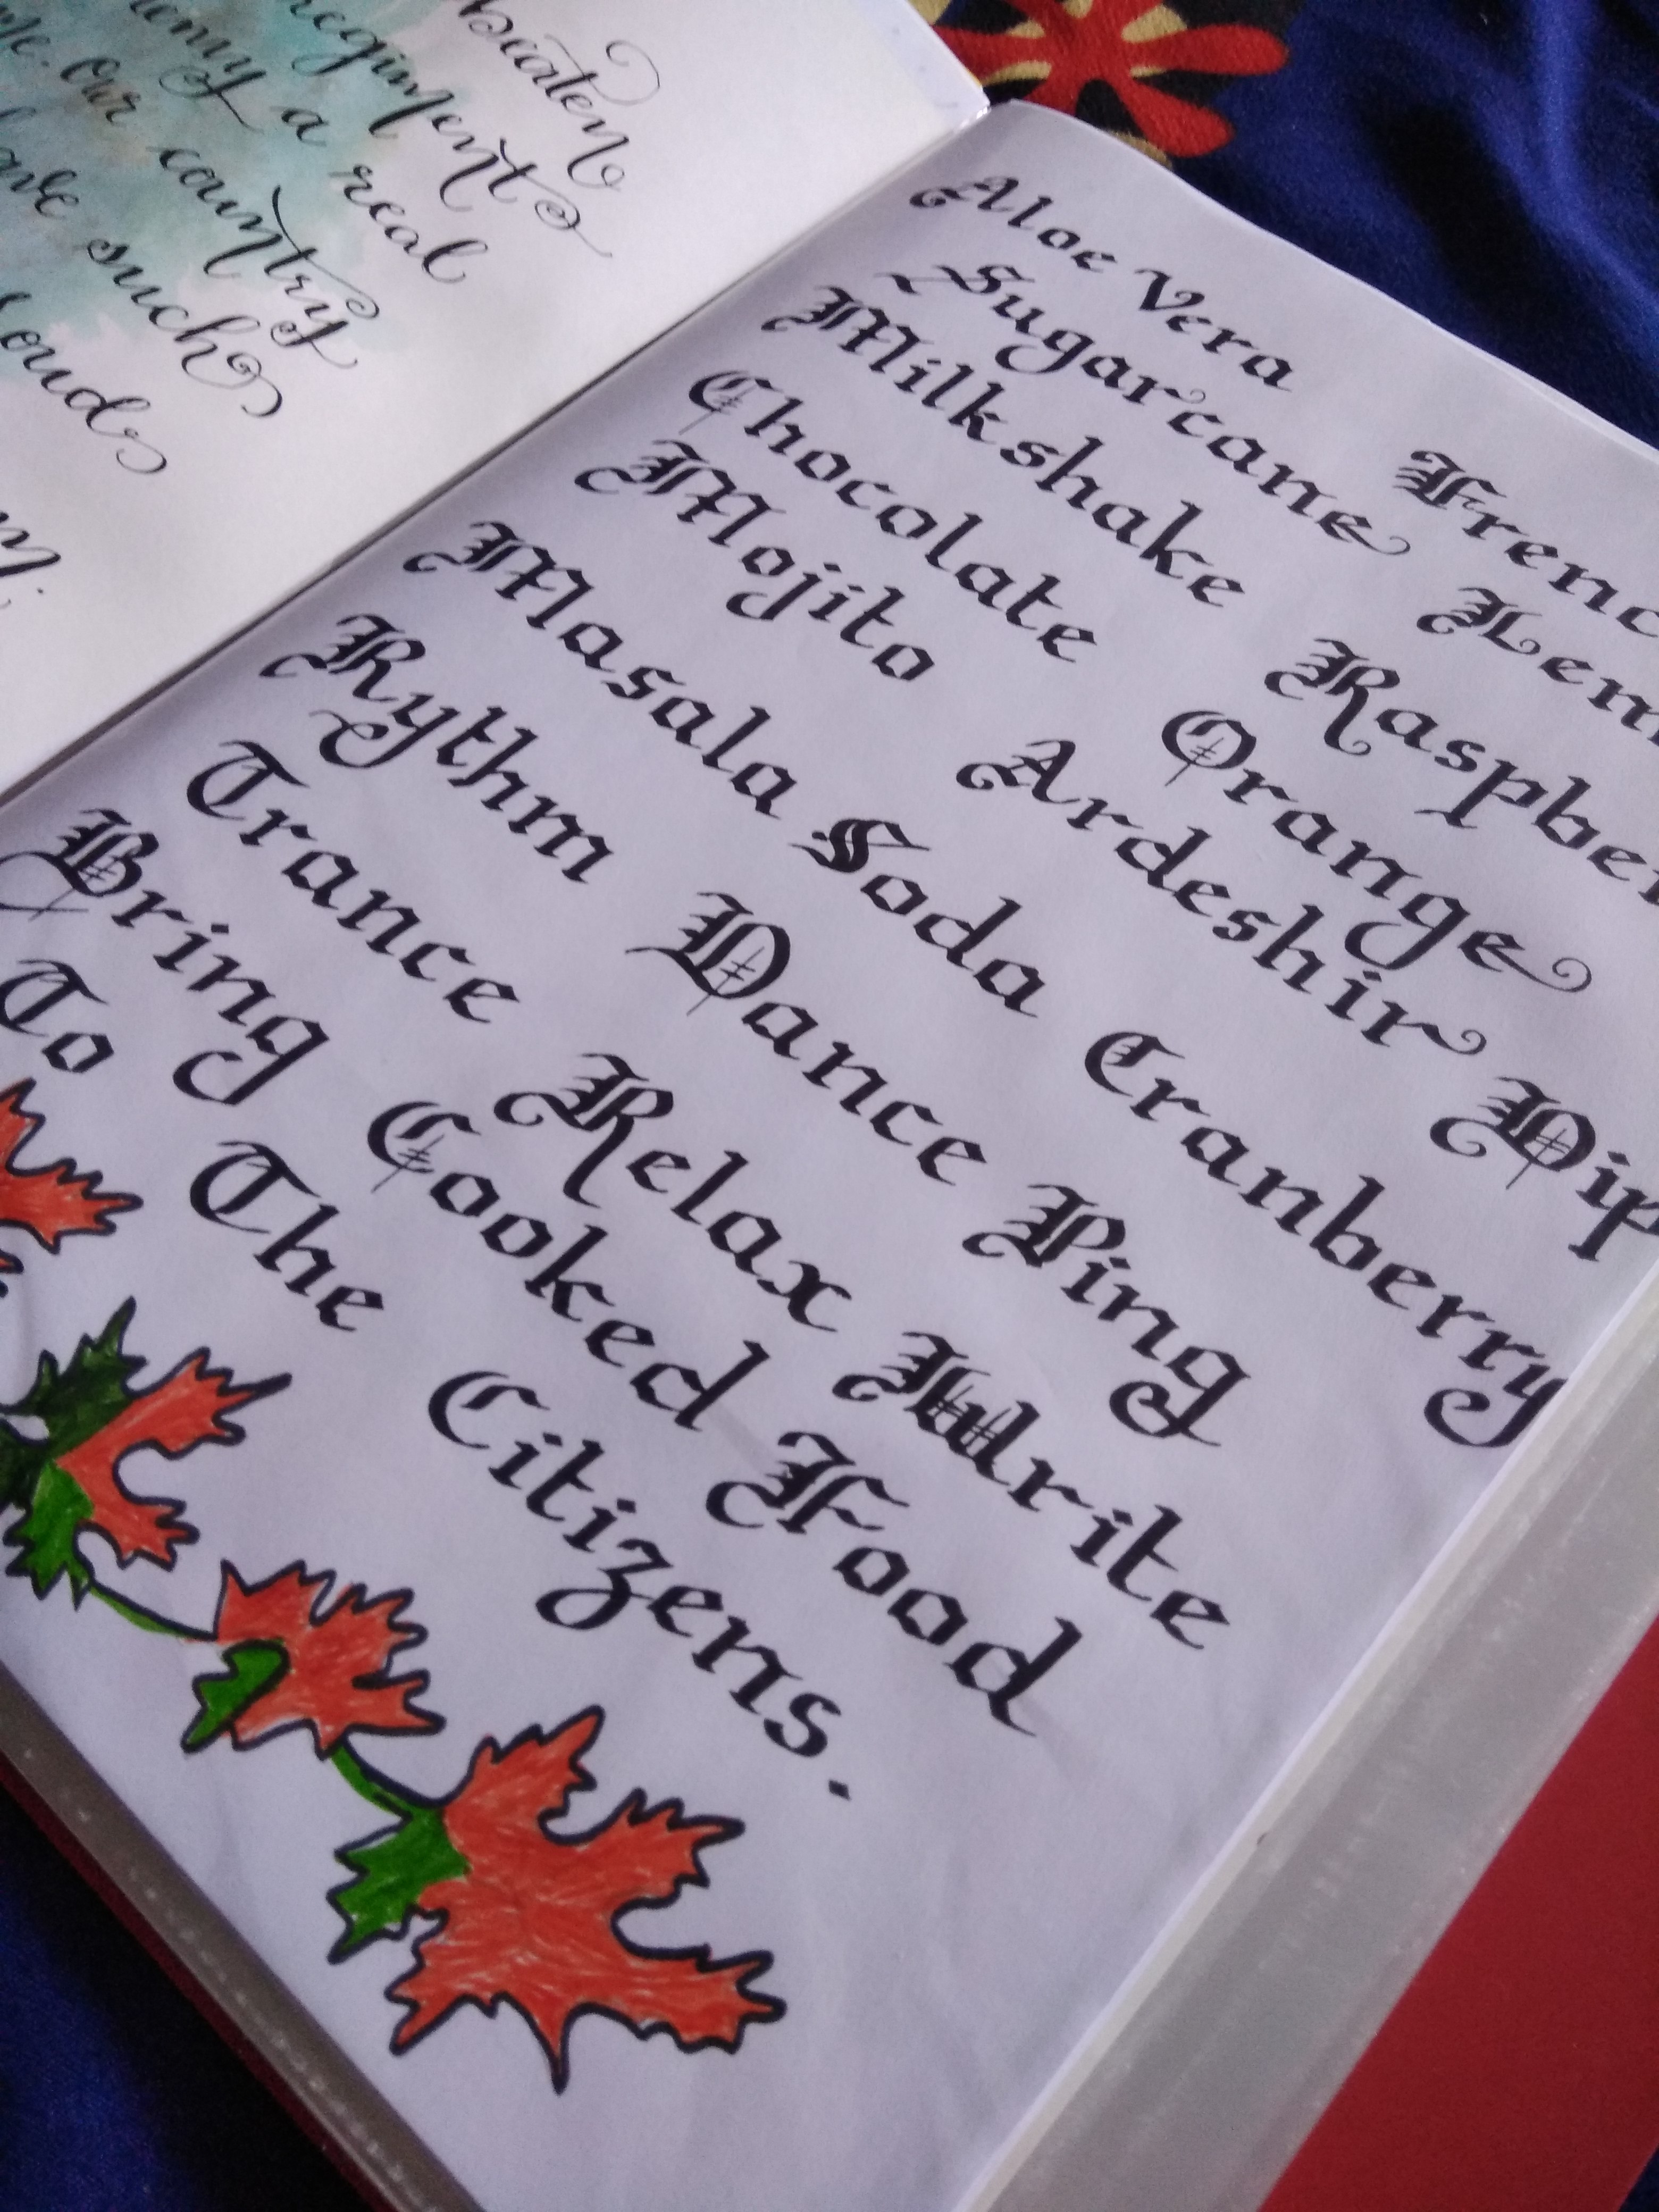 beaten
regiment
a real
Our country
such
Aloe Vera Frenc
Sugarcane Lem
Milkshake Raspber
Chocolate Orange
Mojito Ardeshir Dip
Masala Soda Cranberry
Rythm Dance Ping
Trance Relax Write
Bring Cooked Food
To The Citizens.